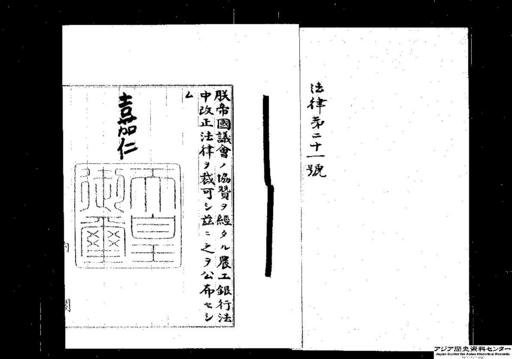 法律第二十一號
朕帝國議會ノ協贊ヲ經タル農工銀行法
中改正法律ヲ裁可シ茲ニ之ヲ公布セシ
ム
嘉仁
天皇
御璽
内
閣
アジア歴史資料センター
Japan Center for Asian Historical Records